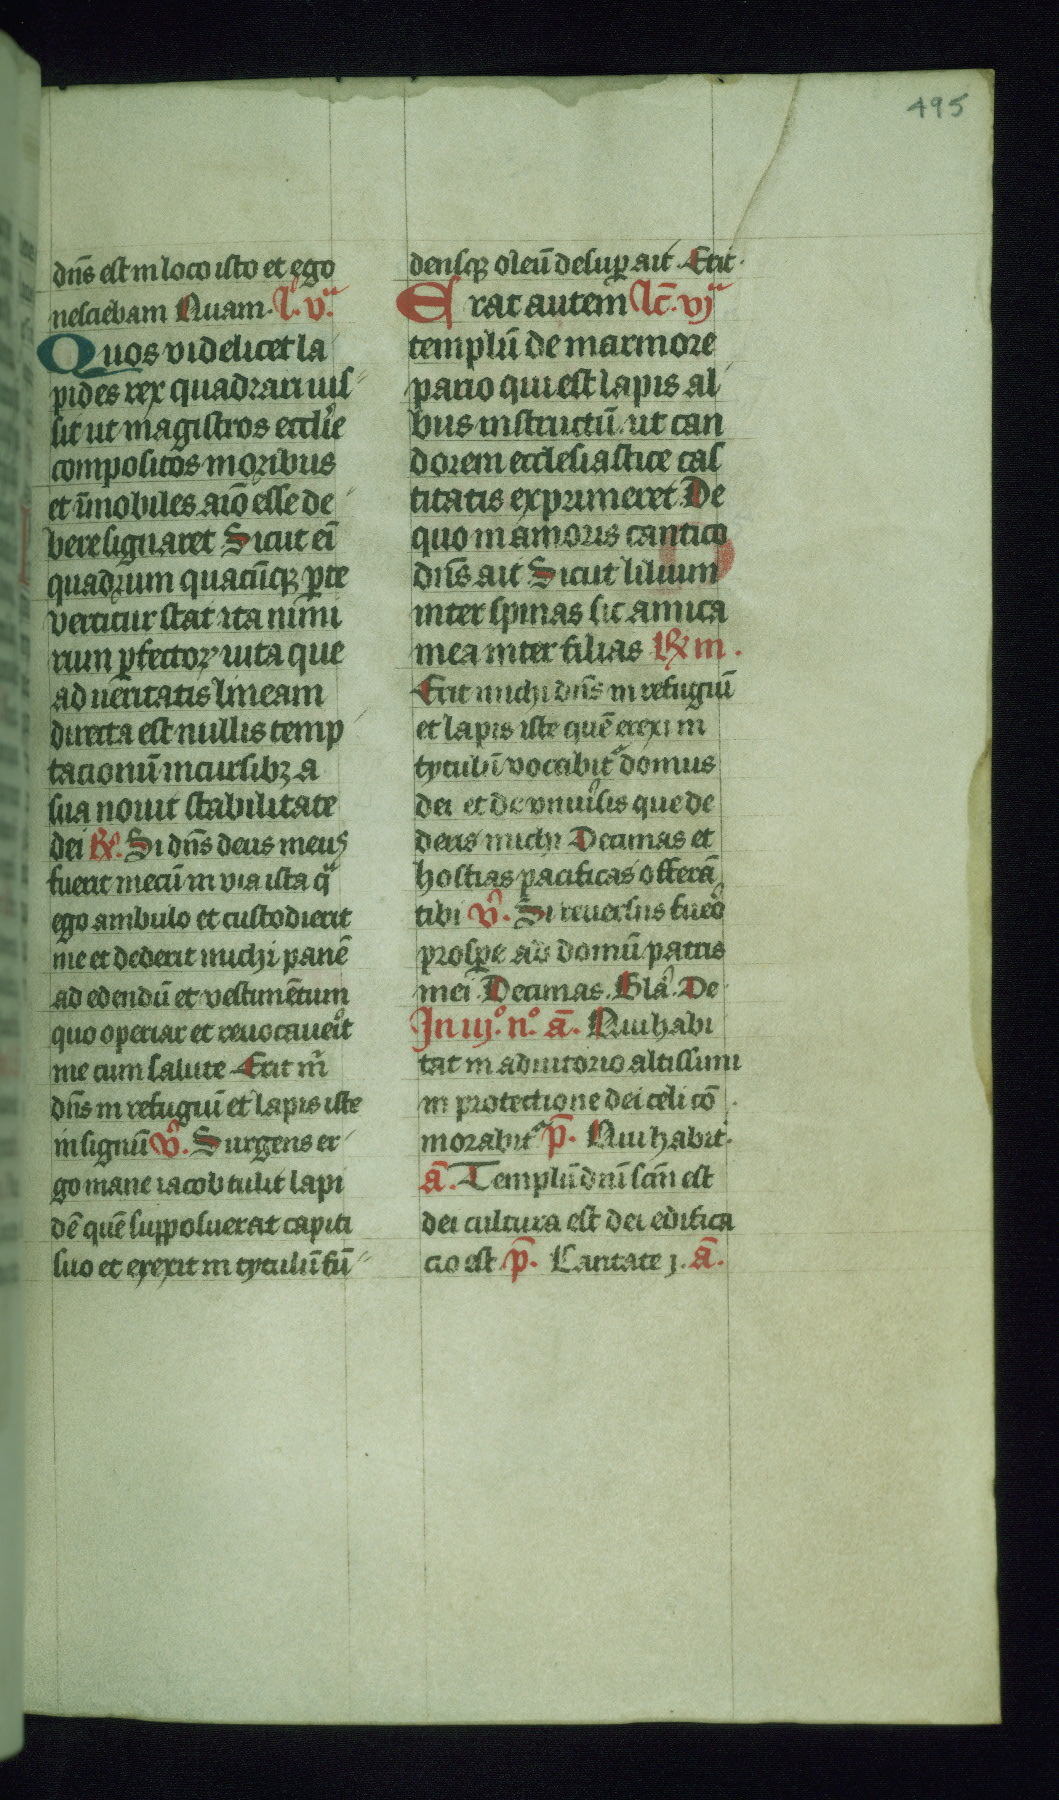 495
dn̄s est in loco isto et ego
nesciebam Quam. l̄. v.ᵃ
Quos videlicet la
pides rex quadrari iuſ
sit ut magistros ecclīe
compositos moribus
et īmobiles aīo esse de
bere signaret Sicut eī
quadrum quacūqꝫ ꝑte
vertitur stat ita nimi
rum ꝑfectoꝝ uita que
ad ueritatis lineam
directa est nullis temp
tacionū incursibꝫ a
sua nouit stabilitate
dei R̄. Si dn̄s deus meus
fuerit mecū in via ista qᵃ
ego ambulo et custodierit
me et dederit michi panē
ad edendū et vestimētum
quo operiar et reuocauerit
me cum salute Erit m̄
dn̄s in refugiū et lapis iste
in signū v̄. Surgens er
go mane iacob tulit lapi
dē quē supposuerat capiti
suo et erexit in tytulū fū
densqꝫ oleū desuꝑ ait Erit.
Erat autem lc̄. vjᵃ
templū de marmore
pario qui est lapis al
bus instructū ut can
dorem ecclesiastice cas
titatis exprimeret De
quo in amoris cantico
dn̄s ait Sicut lilium
inter spinas sic amica
mea inter filias R̄ m.
Erit michi dn̄s in refugiū
et lapis iste quē erexi in
tytulū vocabit᷑ domus
dei et de vniuīsis que de
deris michi Decimas et
hostias pacificas offerā
tibi v̄. Si reuersus fuero
prosꝑe ad domū patris
mei. Decimas. Glā. De
In iij.º n.º ā. Qui habi
tat in adiutorio altissimi
in protectione dei celi cō
morabit᷑ p̄. Qui habit.
ā. Templū dn̄i scm̄ est
dei cultura est dei edifica
cio est p̄. Cantate j. ā.